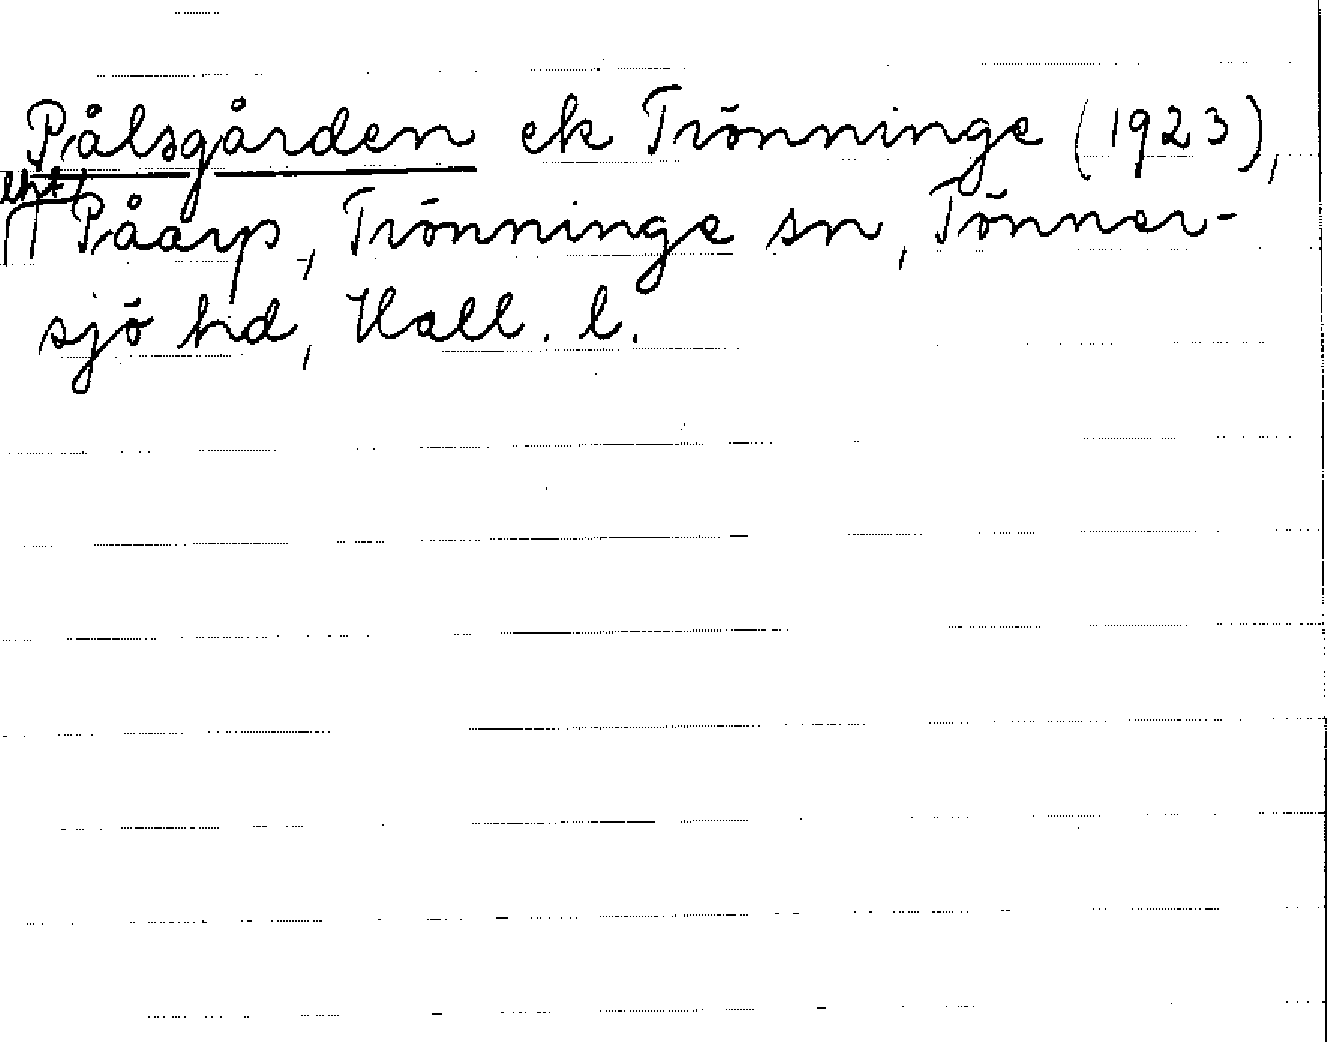 Pålsgården ek Trönninge (1923),
Påarp, Trönninge sn, Tönner-
sjö hd, Hall. l.